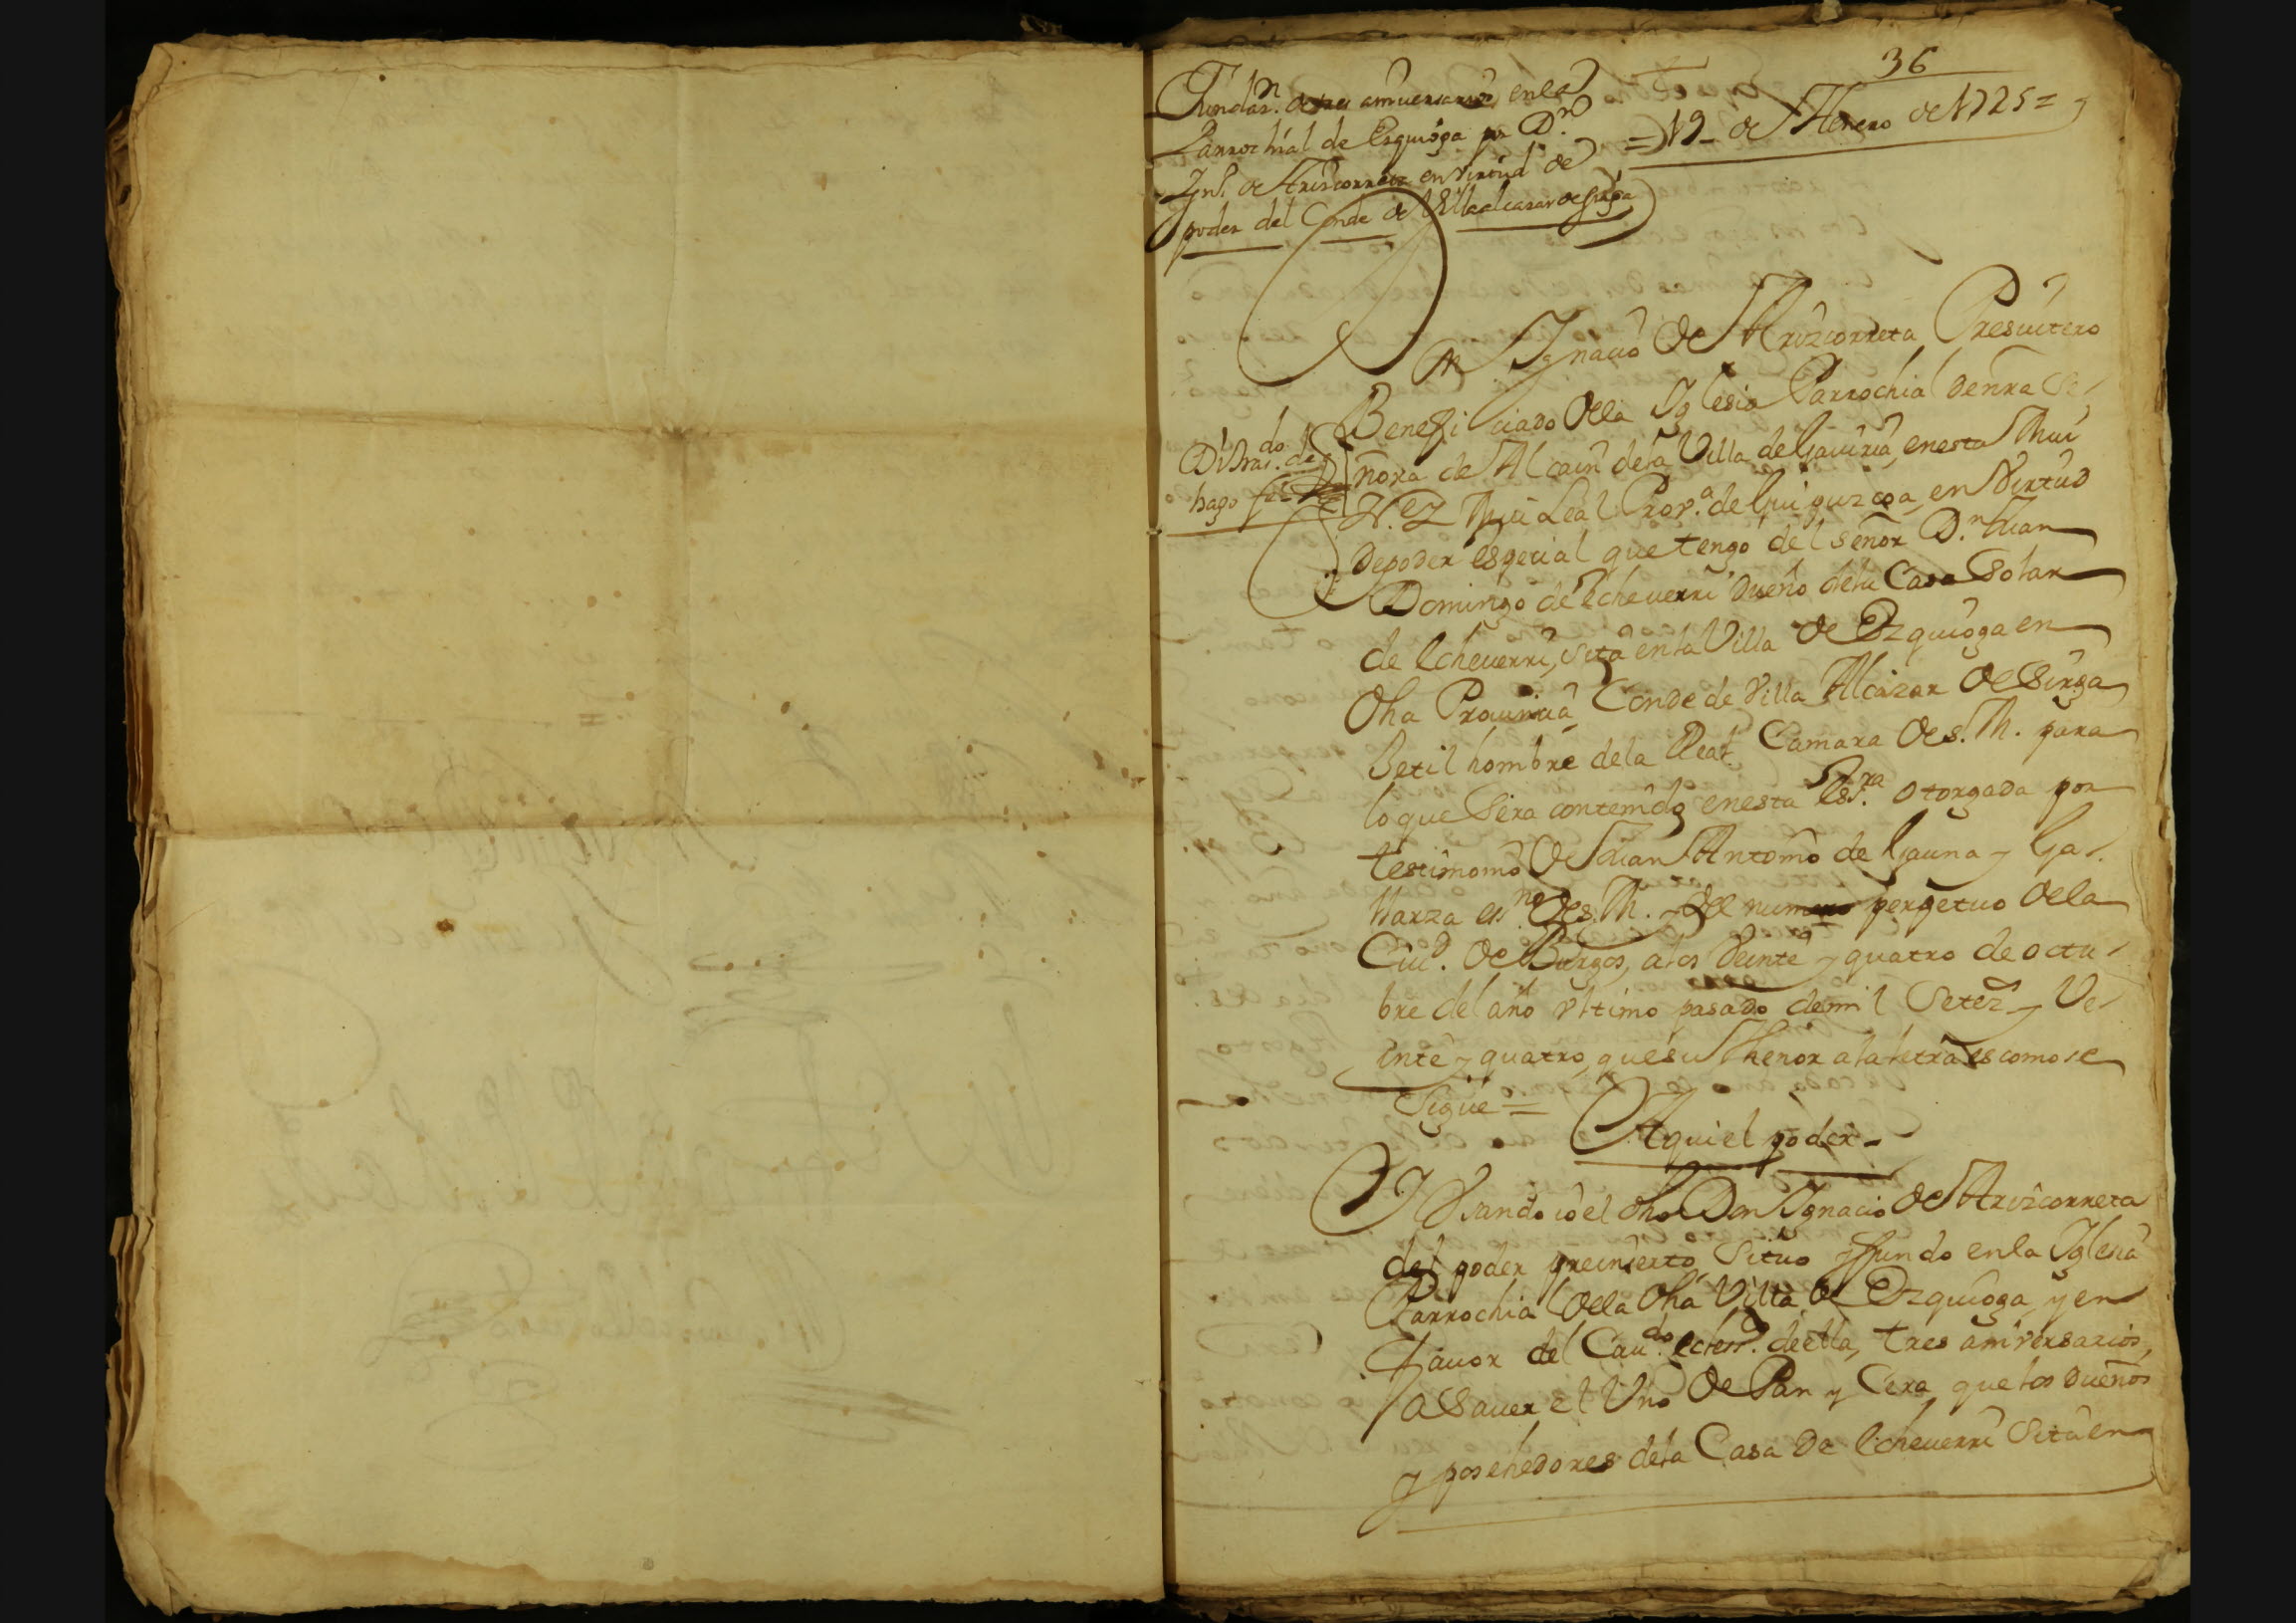 36
Fundaz.n de tres aniuersarios en la
Parrochial de Ezquioga por D.n
Ign.o de Arizcorreta en virtud de
poder del Conde de Villaalcazar de sirga
= 19 de Henero de 1725 =
Dn Ygnacio de Arizcorreta Presuitero
Benefiziado de la Yglesia Parrochial de nra Se
ñora de Alcain de la Villa de Gauiria, en esta Mui
N. e Y Mui Leal Prov.a de Guipuzcoa, en Virtud
de poder espeçial que tengo del señor D.n Juan
Domingo de Echeuerri dueño de la Casa Solar
de Echeuerri, sita en la Villa de Ezquioga en
dha Prouincia, Conde de Villa Alcazar de Sirga
Jetil hombre de la Real Camara de s. M. para
lo que sera contenido en esta Es.ra otorgada por
testimonio de Juan Antonio de Gauna y Ga
llarza es.no de s. M. y del numero perpetuo de la
Ciu.d de Burgos, a los Veinte y quatro de octu
bre del año vltimo pasado de mil Setez.s y Ve
inte y quatro, que su thenor a la letra es como se
sigue =
Aqui el poder -
Y Vsando io el dho Don Ygnacio de Arizcorreta
del poder preinserto, situo y fundo en la Yglesia
Parrochial de la dha Villa de Ezquioga, y en
fauor del Cau.do ecless.o de ella, tres aniversarios,
a Sauer el Vno de Pan y Cera que los dueños
y posehedores de la Casa de Echeuerri Sita en
hago fee